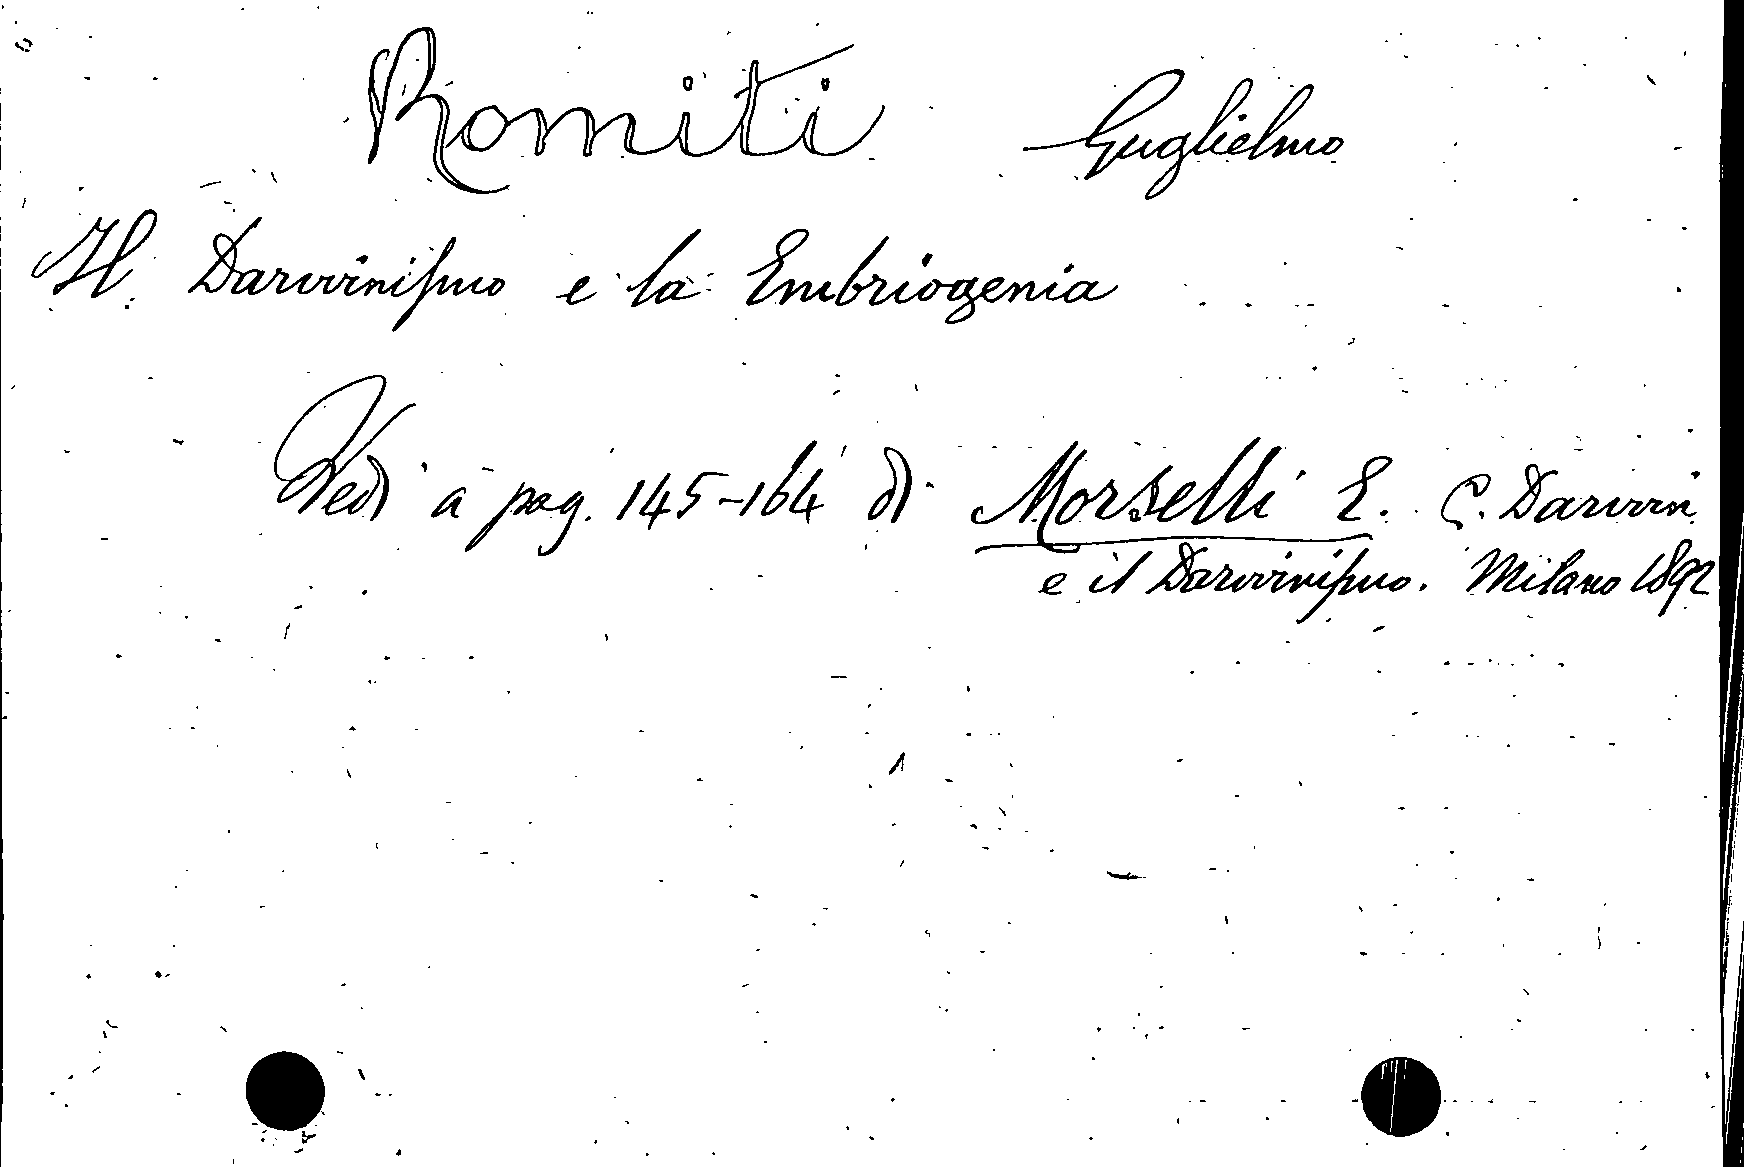 Romiti Guglielmo
Il Darwinismo e la Embriogenia
Vedi a pag. 145-164 di Morselli E. C. Darwin
e il Darwinismo. Milano 1892